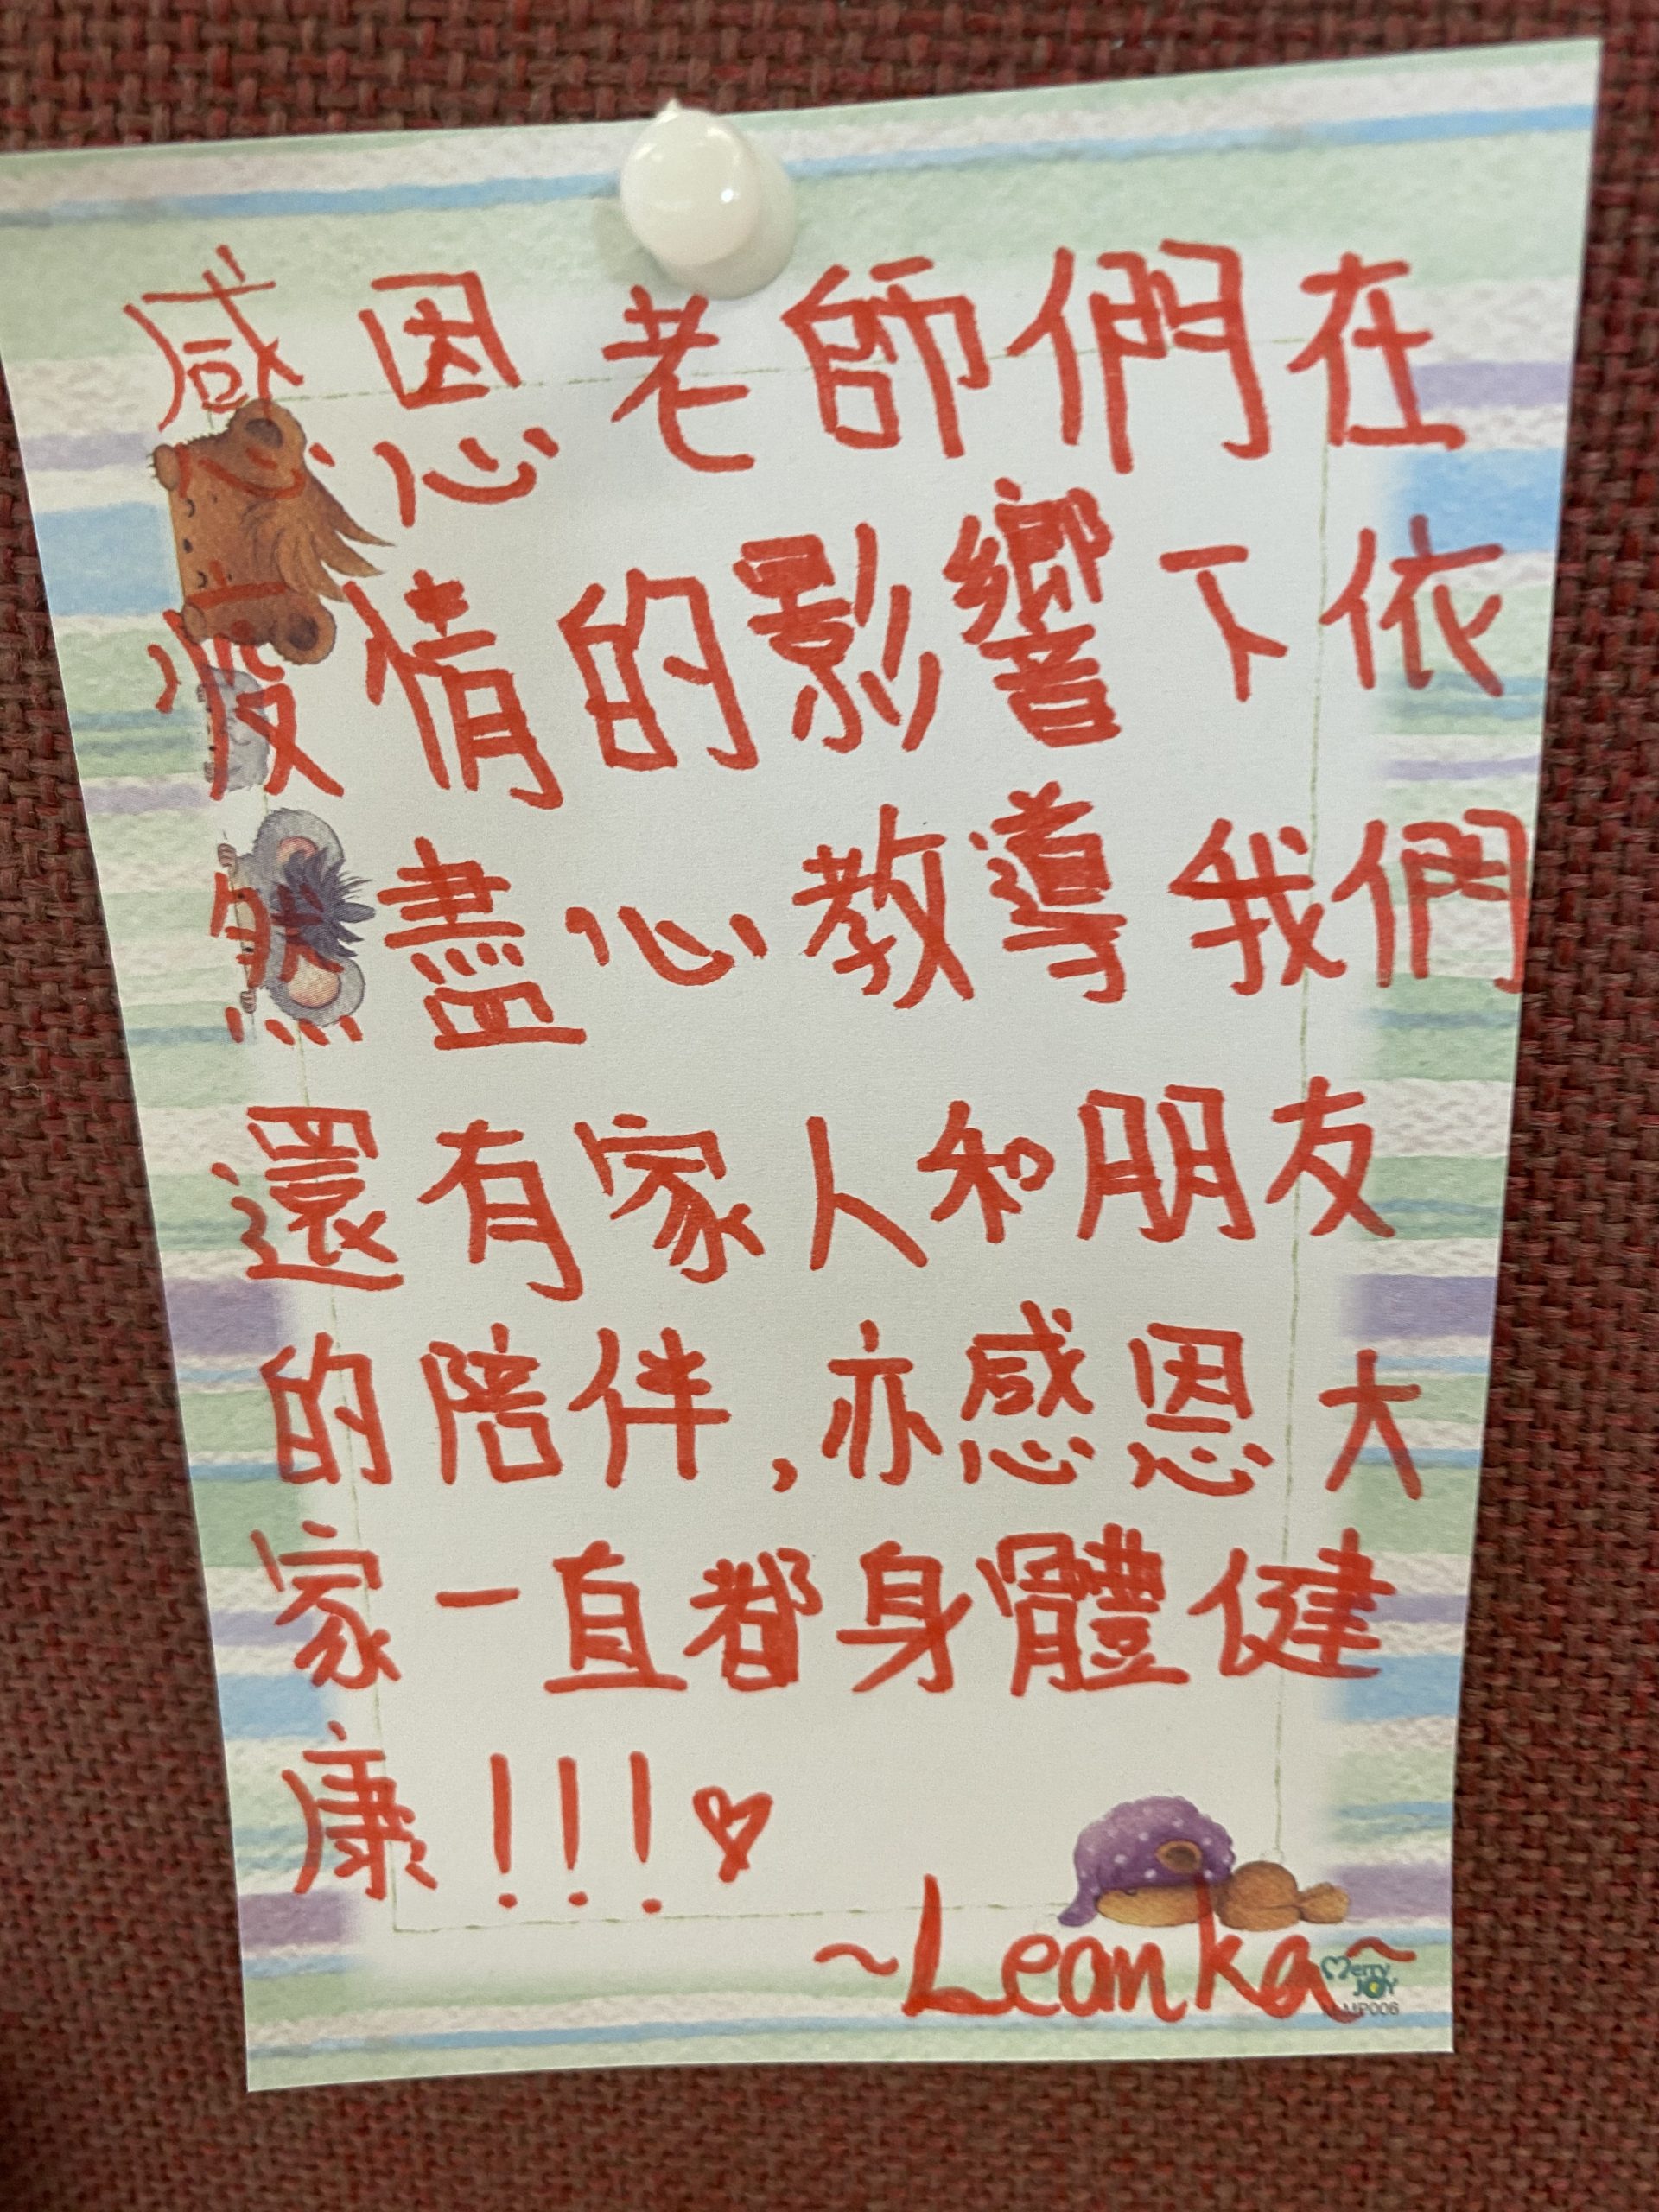 感恩老師們在
疫情的影響下依
然盡心教導我們
還有家人和朋友
的陪伴,亦感恩大
家一直都身體健
康!!!♡
~Leanka~
Merry
JOY